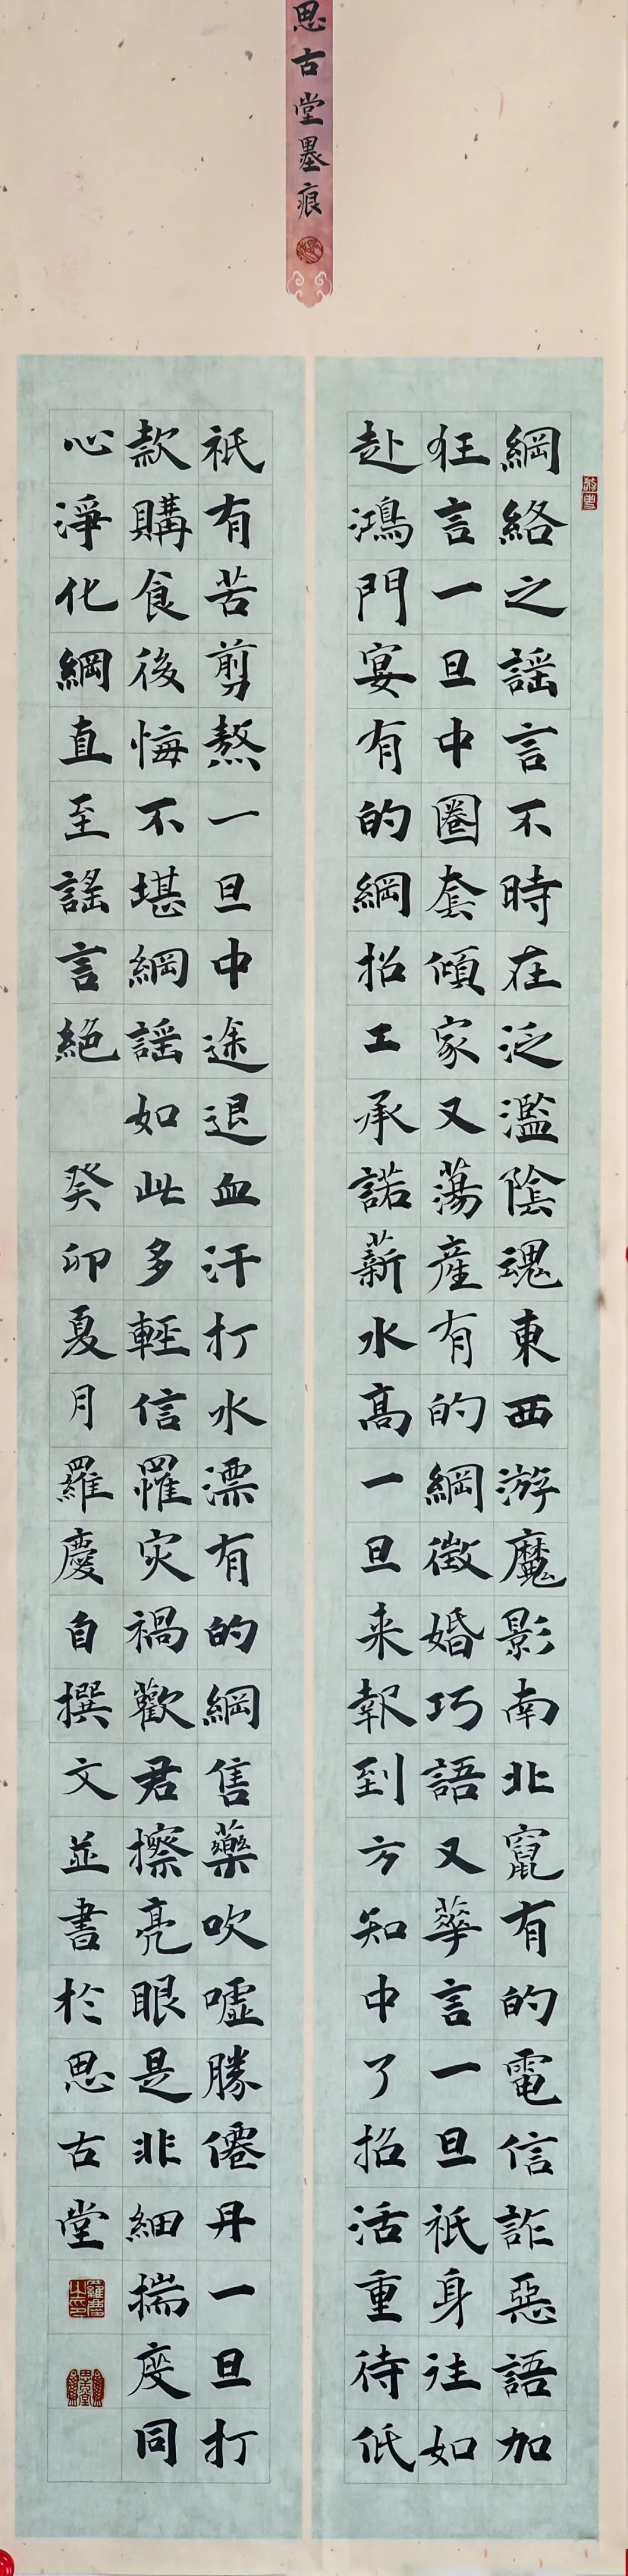 思古堂墨痕
綱絡之謡言不時在泛濫陰魂東西游魔影南北竄有的電信詐惡語加
狂言一旦中圈套傾家又蕩産有的綱徵婚巧語又華言一旦祇身往如
赴鴻門宴有的綱招工承諾薪水高一旦来報到方知中了招活重待低
祇有苦剪熬一旦中途退血汗打水漂有的綱售藥吹嘘勝僊丹一旦打
款購食後悔不堪綱謡如此多輕信罹灾禍歡君擦亮眼是非細揣度同
心淨化綱直至謡言絕 癸卯夏月羅慶自撰文並書於思古堂